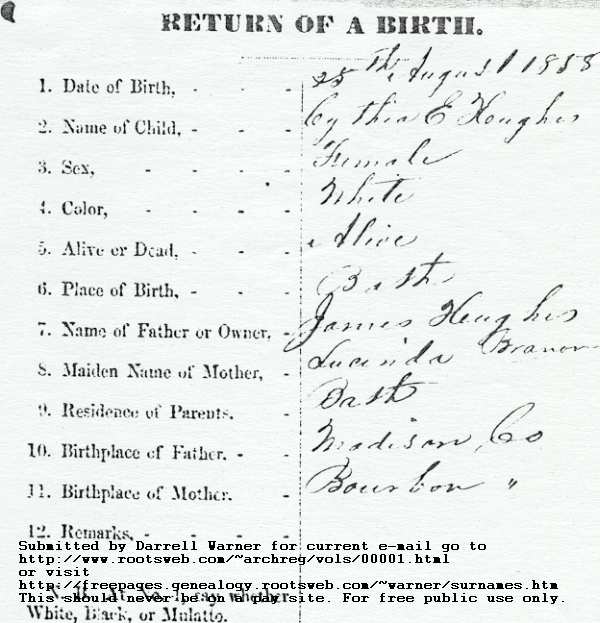 RETURN OF A BIRTH.
1. Date of Birth, - - - 28th August 1858
2. Name of Child, - - - Cythia E Houghes
3. Sex, - - - - Female
4. Color, - - - - White
5. Alive or Dead, - - - Alive
6. Place of Birth, - - - Bath
7. Name of Father or Owner, - James Hughes
8. Maiden Name of Mother, - Lucinda Branon
9. Residence of Parents. - Bath
10. Birthplace of Father. - - Madison Co
11. Birthplace of Mother. - Bourbon "
12. Remarks, - - - -
Submitted by Darrell Warner for current e-mail go to
http://www.rootsweb.com/~archreg/vols/00001.html
or visit
http://freepages.genealogy.rootsweb.com/~warner/surnames.htm
N. B. At No. 4 say whether
This should never be on a pay site. For free public use only.
White, Black, or Mulatto.